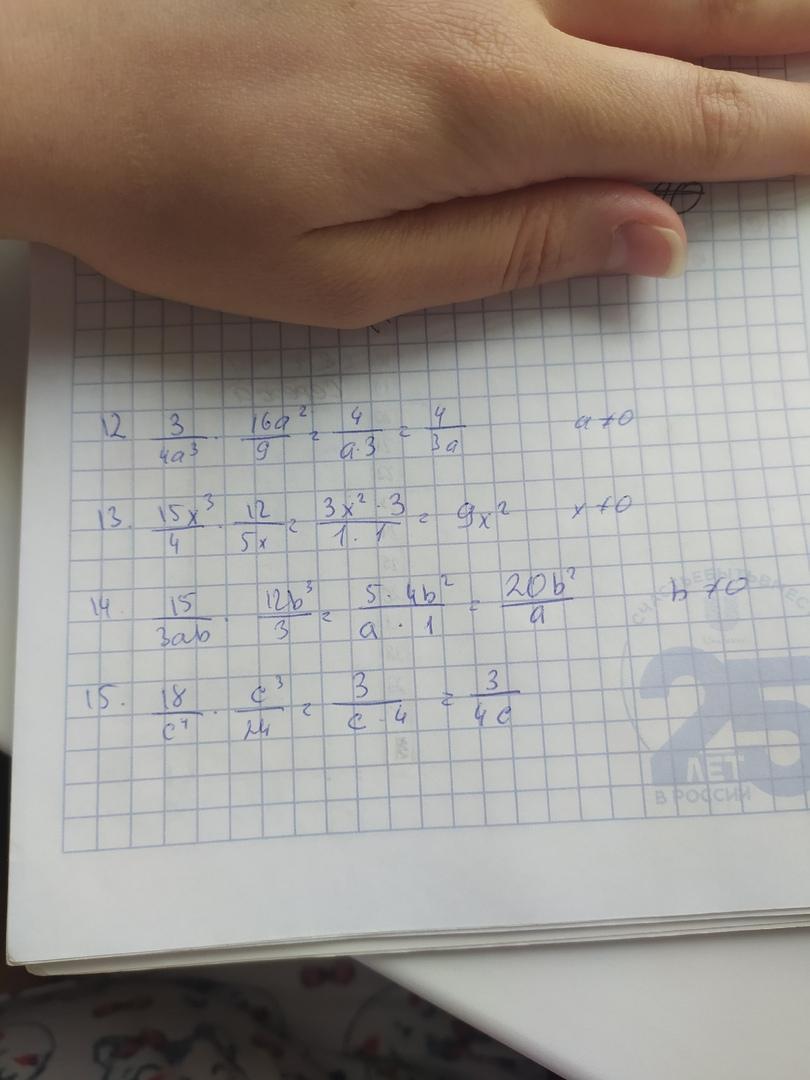 12 3/4a³ · 16a²/9 = 4/a·3 = 4/3a a≠0
13. 15x³/4 · 12/5x = 3x²·3/1·1 = 9x² x≠0
14. 15/3ab · 12b³/3 = 5·4b²/a·1 = 20b²/a b≠0
15. 18/c⁴ · c³/24 = 3/c·4 = 3/4c
25
ЛЕТ
В РОССИИ